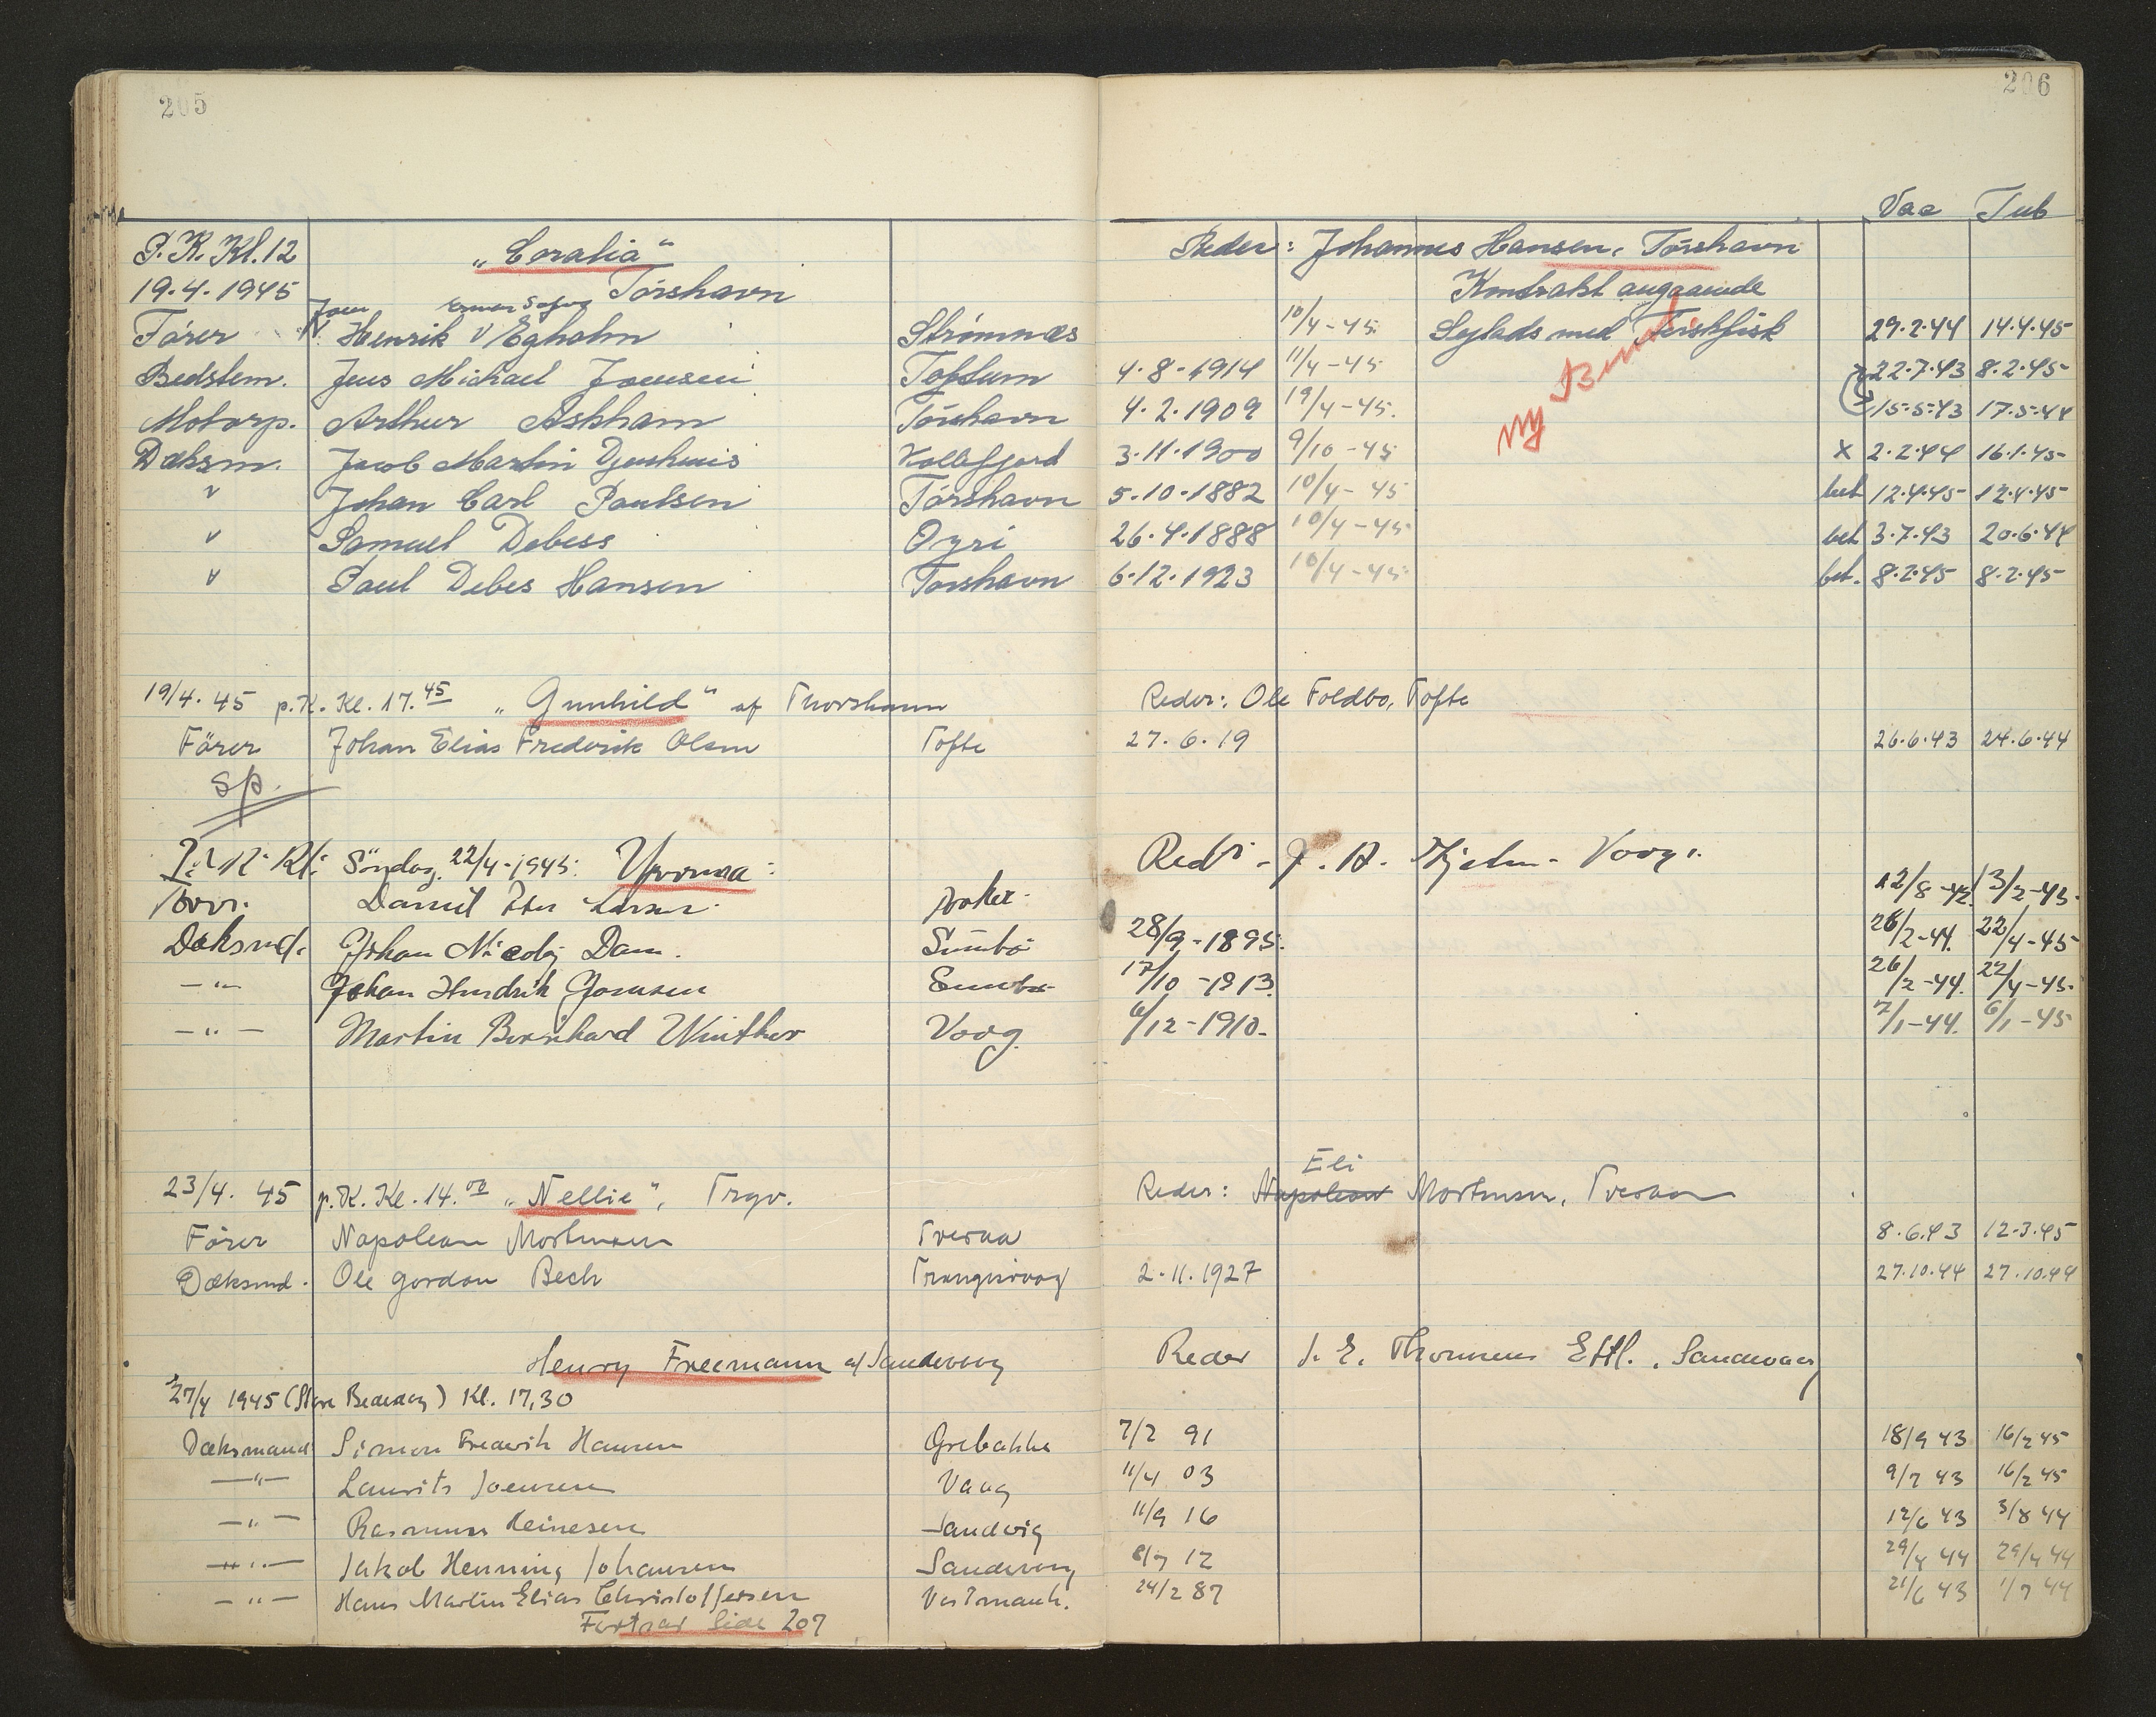 205
206
Vac Tub
P.K. Kl. 12 „Coralia“ Reder: Johannes Hansen, Tórshavn
19.4.1945 Tórshavn Kontrakt angaaende
Fører Henrik Egholm Strømnæs 10/4-45 Sejlads med Færskfisk 29.2.44 14.4.45
Bedstem. Jens Michael Joensen Toftum 4.8.1914 11/4-45 22.7.43 8.2.45
ny
Motorp. Arthur Askham Tórshavn 4.2.1909 19/4-45. 15.5.43 17.5.44
Dæksm. Jacob Martin Djurhuus Kollefjord 3.11.1900 9/10-45 x 2.2.44 16.1.45
" Johan Carl Poulsen Tórshavn 5.10.1882 10/4-45 bet 12.4.45 12.4.45
" Samuel Debess Oyri 26.4.1888 10/4-45 bet 3.7.43 20.6.44
" Poul Debes Hansen Tórshavn 6.12.1923 10/4-45 bet. 8.2.45 8.2.45
19/4.45 p.K. Kl. 17.45 „Gunhild“ af Thorshavn Reder: Ole Foldbo, Tofte
Fører Johan Elias Frederik Olsen Tofte 27.6.19 26.6.43 24.6.44
sp.
Kl: Söndag. 22/4-1945: Red
Daniel Peter Larsen. 12/8-42. 13/2-43.
Dæksmd. Johan Nicolaj Dam. Sumbö 28/9-1895. 26/2-44. 22/4-45
-"- Johan Hendrik Joensen Sumbö 17/10-1913. 26/2-44. 22/4-45.
-"- Martin Bernhard Winther Voog. 6/12-1910. 7/1-44. 6/1-45
Eli
23/4. 45 p.K. Kl. 14.00 „Nellie“, Trgv. Reder: Napoleon Mortensen, Tveraa
Fører Napoleon Mortensen Tveraa 8.6.43 12.3.45
Dæksmd. Ole Gordon Bech Trangisvaag 2.11.1927 27.10.44 27.10.44
Henry Freemann af Sandevaag Reder J. E. Thomsens Eftf., Sandevaag
27/4 1945 (Store Bededag) Kl. 17,30
Dæksmand Simon Frederik Hansen Grebakke 7/2 91 18/9 43 16/2 45
-"- Laurits Joensen Vaag 11/4 03 9/7 43 16/2 45
-"- Rasmus Heinesen Sandvig 11/9 16 12/6 43 3/8 44
-"- Jakob Henning Johansen Sandevaag 8/7 12 29/4 44 29/4 44
-"- Hans Martin Elias Christoffersen Vestmanh. 24/2 87 21/6 43 1/7 44
Fortsat Side 207